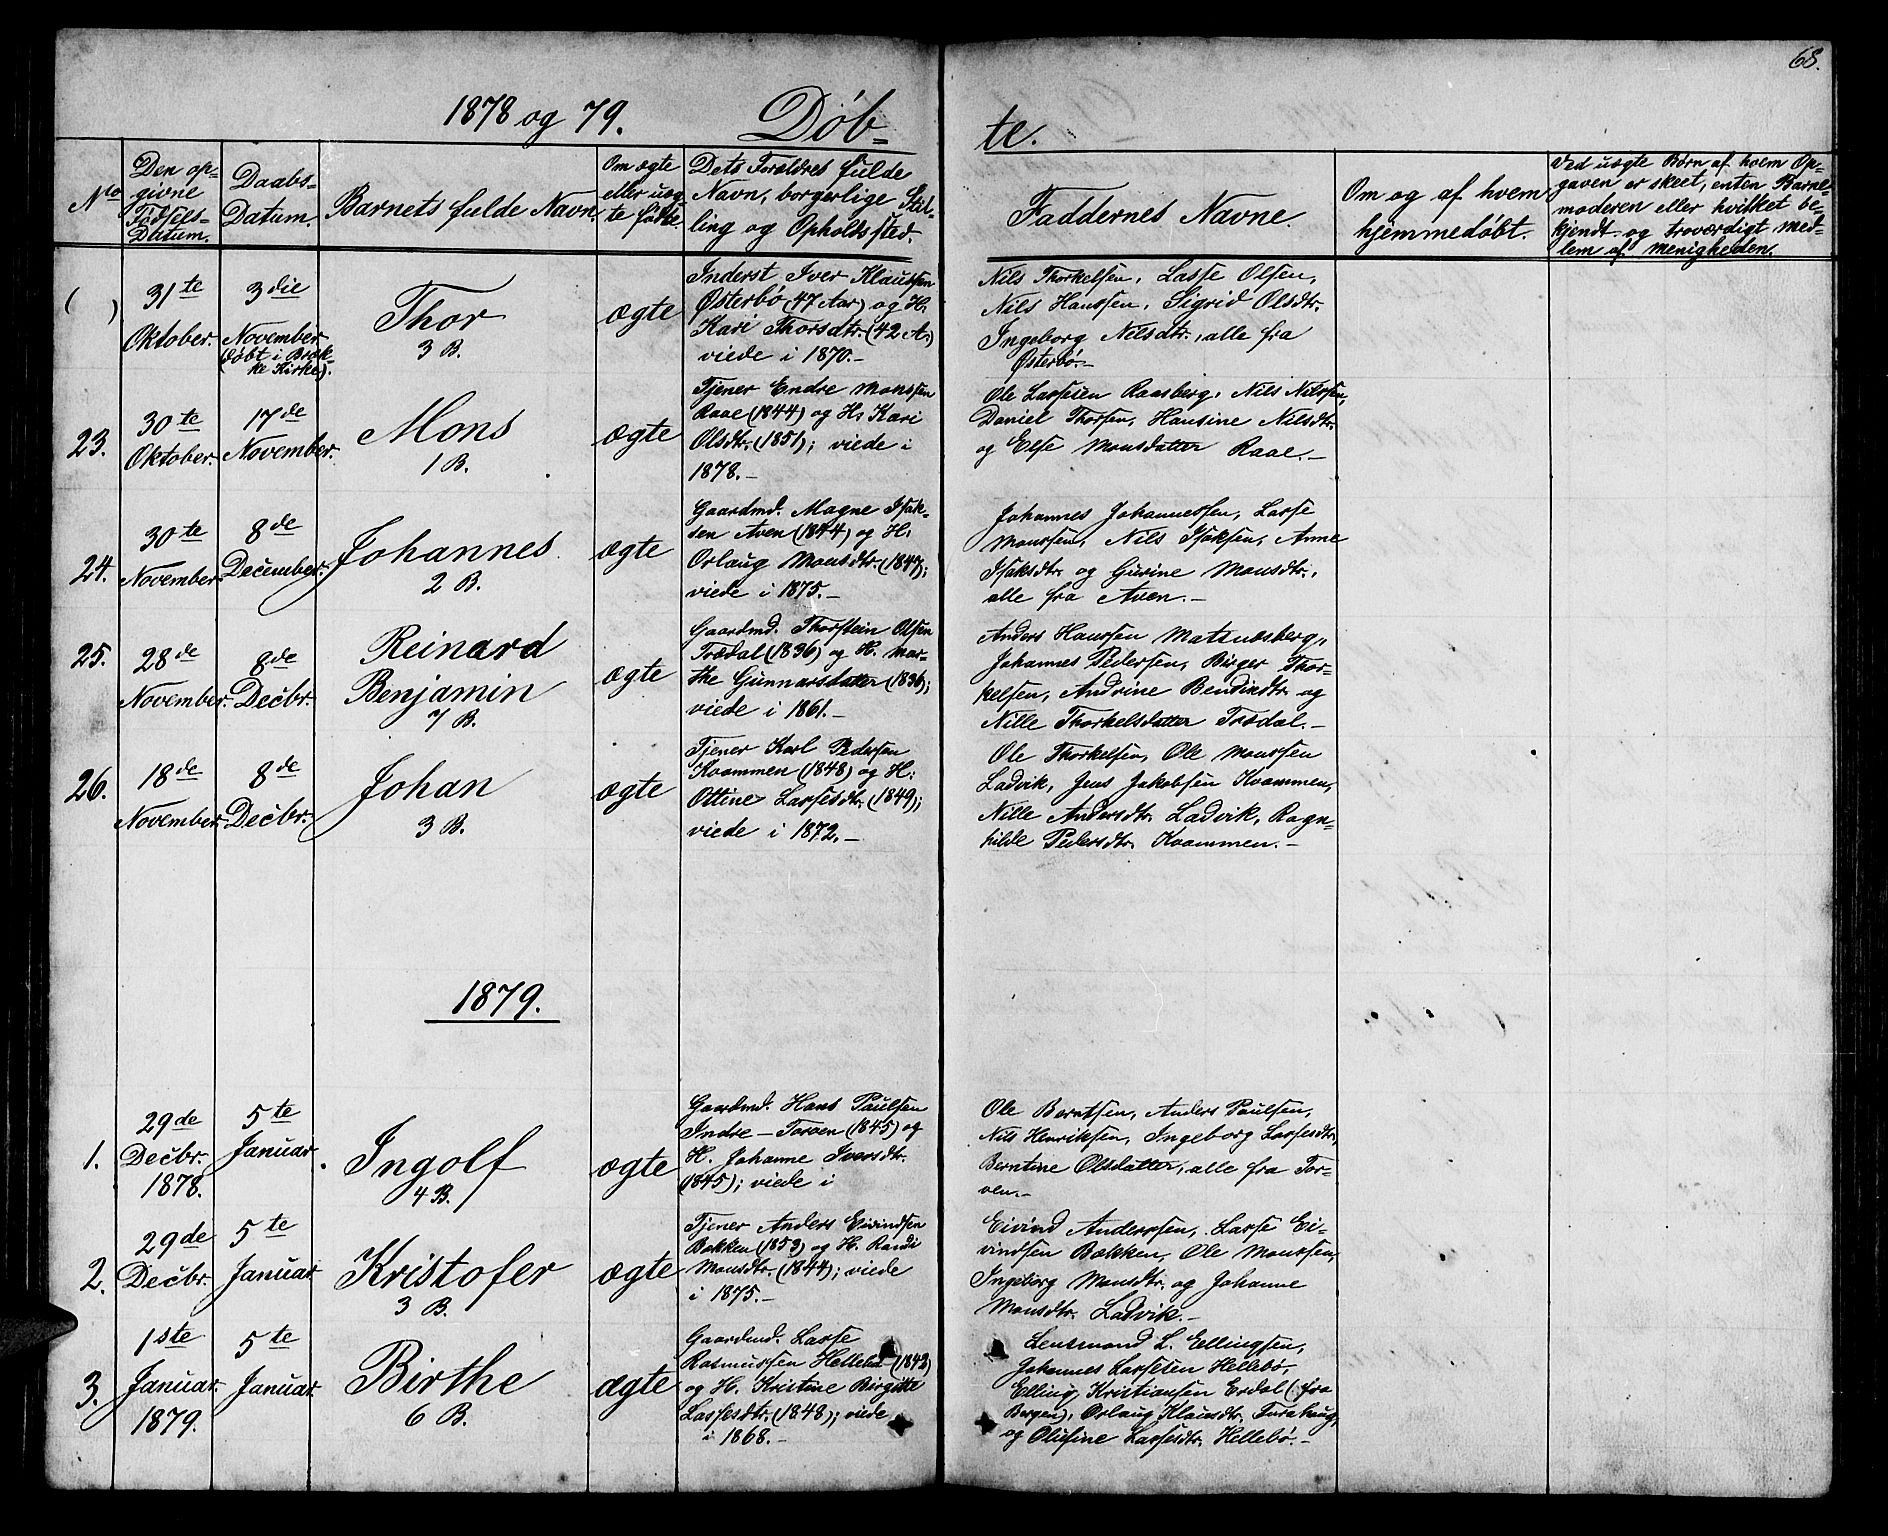 68.
1878 og 79.
Døb=
te.
No
Den op=
givne
Fødsels-
Datum.
Daabs-
Datum.
Barnets fulde Navn.
Om ægte
eller uæg
te født.
Dets Forældres fulde
Navn, borgerlige Stil=
ling og Opholdssted.
Faddernes Navne.
Om og af hvem
hjemmedøbt.
Ved uægte Børn af hvem Op=
gaven er skeet, enten Barne=
moderen eller hvilket be=
kjendt og troværdigt med=
lem af Menigheden.
( )
31te
Oktober.
3die
November
(døbt i Bræk=
ke Kirke).
Thor
3 B.
ægte
Inderst Iver Klaussen
Østerbø (47 Aar) og H.
Kari Thorsdtr. (42 A.)
viede i 1870.-
Nils Thorkelsen, Lasse Olsen,
Nils Hanssen, Sigrid Olsdtr.
Ingeborg Nilsdtr., alle fra
Østerbø.-
23.
30te
Oktober.
17de
November.
Mons
1 B.
ægte
Tjener Endre Monssen
Raae (1844) og H. Kari
Olsdtr. (1851); viede i
1878.-
Ole Lassesen Raasberg, Nils Nilssen,
Daniel Thorsen, Hansine Nilsdtr.
og Else Monsdatter Raae.-
24.
30te
November.
8de
December.
Johannes.
2 B.
ægte
Gaardmd. Magne Isak=
sen Aven (1844) og H.
Orlaug Monsdtr. (1847);
viede i 1875.-
Johannes Johannessen, Lasse
Monssen, Nils Isaksen, Anne
Isaksdtr. og Gurine Monsdtr.,
alle fra Aven.-
25.
28de
November.
8de
Decbr.
Reinard
Benjamin
7 B.
ægte
Gaardmd. Thorstein Olsen
Trædal (1836) og H. Mar=
the Gunnarsdatter (1836);
viede i 1861.-
Anders Hanssen Matsnæsberg,
Johannes Pedersen, Birger Thor=
kelsen, Andrine Bendixdtr. og
Nille Thorkelsdatter Trædal.-
26.
18de
November.
8de
Decbr.
Johan
3 B.
ægte
Tjener Karl Pedersen
Kvammen (1848) og H.
Ottine Lassesdtr. (1849);
viede i 1872.-
Ole Thorkelsen, Ole Monssen
Ladvik, Jens Jakobsen Kvammen,
Nille Andersdtr. Ladvik, Ragn=
hilde Pedersdtr. Kvammen.-
1879.
1.
29de
Decbr.
1878.
5te
Januar.
Ingolf
4 B.
ægte
Gaardmd. Hans Paulsen
Indre-Torven (1845) og
H. Johanne Iversdtr.
(1845); viede i
Ole Berntsen, Anders Paulsen,
Nils Henriksen, Ingeborg Lassesdtr.,
Berntine Olsdatter, alle fra Tor=
ven.-
2.
29de
Decbr.
5te
Januar.
Kristofer
3 B.
ægte
Tjener Anders Eivindsen
Bakken (1853) og H. Randi
Monsdtr. (1844); viede
i 1875.-
Eivind Anderssen, Lasse Ei=
vindsen Bækken, Ole Monssen,
Ingeborg Monsdtr. og Johanne
Monsdtr. Ladvik.-
3.
1ste
Januar
1879.
5te
Januar.
Birthe
6 B.
ægte
Gaardmd. Lasse
Rasmussen Hellebø (1842)
og H. Kristine Birgitte
Lassesdtr. (1848); viede
i 1868.-
Lensmand L. Ellingsen,
Johannes Lassesen Hellebø,
Elling Kristiansen Erdal (fra
Bergen), Orlaug Klausdtr. Furehaug,
og Olufine Lassesdtr. Hellebø.-